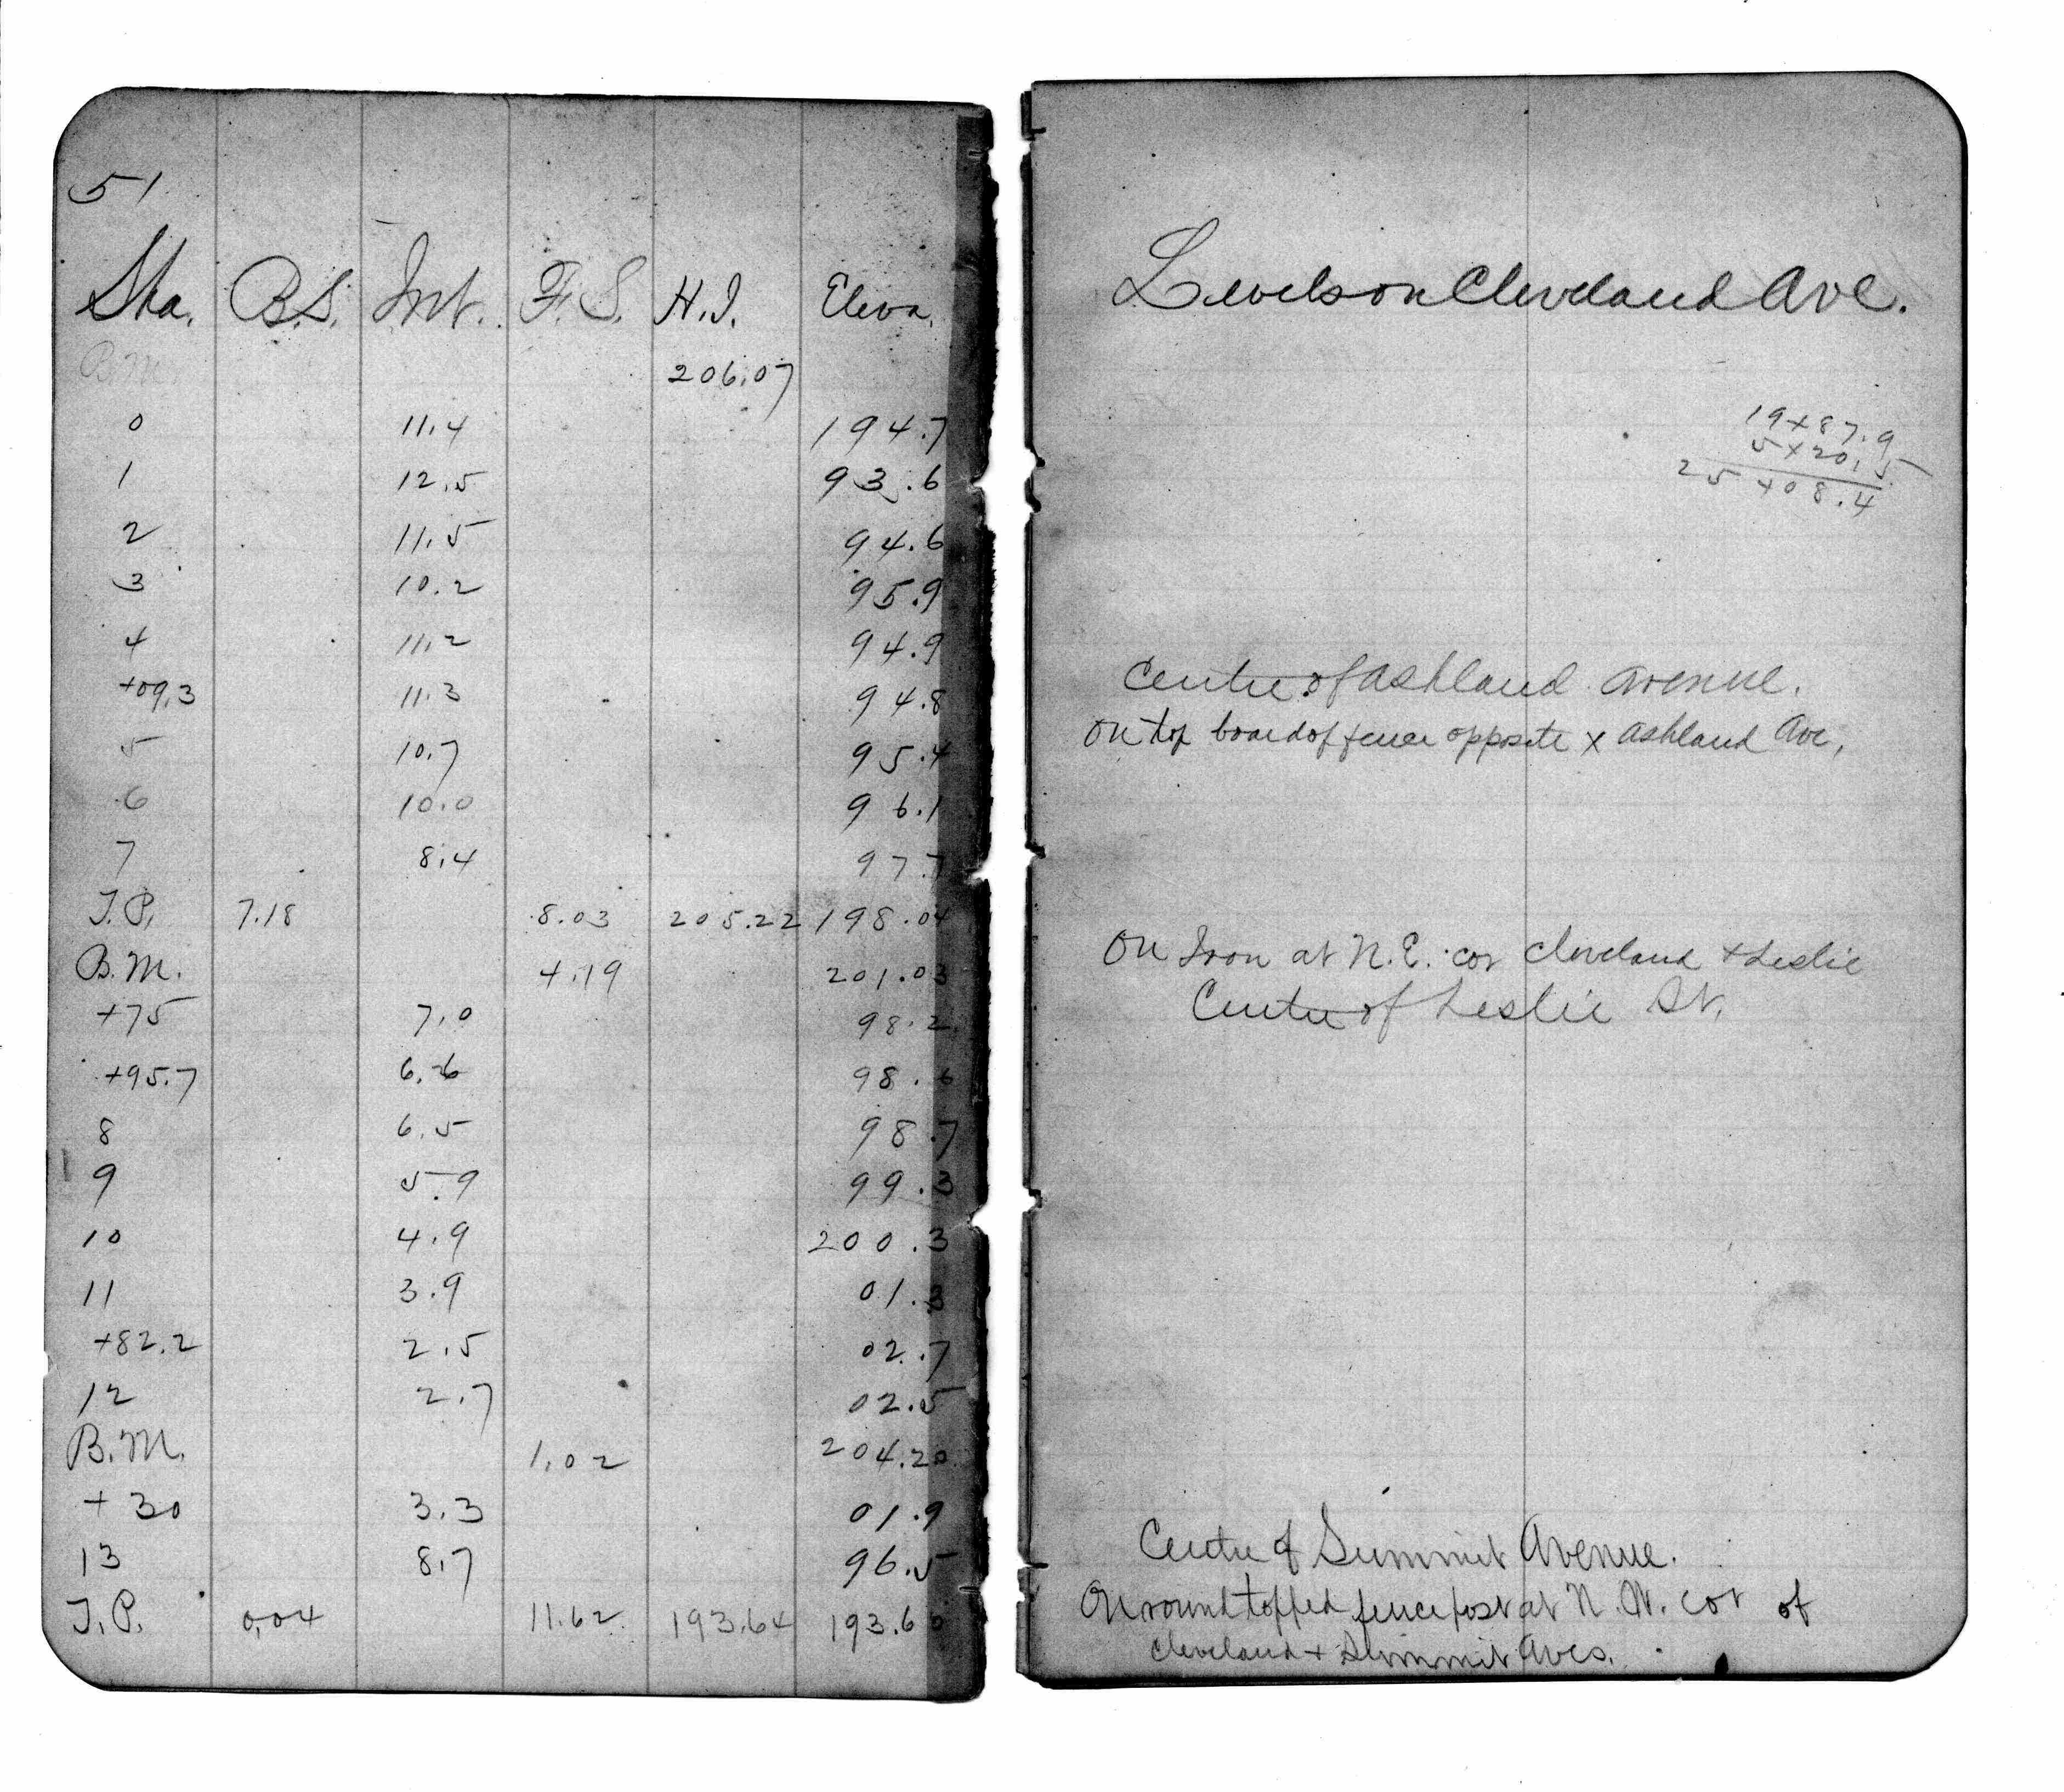 51
Sta. B.S. Int. F.S. H.I. Eleva.
B.M. 206.07
0 11.4 194.7
1 12.5 93.6
2 11.5 94.6
3 10.2 95.9
4 11.2 94.9
+09.3 11.3 94.8
5 10.7 95.4
6 10.0 96.1
7 8.4 97.7
T.P. 7.18 8.03 205.22 198.04
B.M. 4.19 201.03
+75 7.0 98.2
+95.7 6.6 98.6
8 6.5 98.7
9 5.9 99.3
10 4.9 200.3
11 3.9 01.3
+82.2 2.5 02.7
12 2.7 02.5
B.M. 1.02 204.20
+30 3.3 01.9
13 8.7 96.5
T.P. 0.04 11.62 193.64 193.60
Levels on Cleveland Ave.
19+87.9
5+20.5
25+08.4
Centre of Ashland Avenue.
On top board of fence opposite x Ashland Ave,
On Iron at N.E. cor Cleveland + Leslie
Centre of Leslie St.
Centre of Summit Avenue.
On round topped fence post at N.W. cor of
Cleveland + Summit Aves.